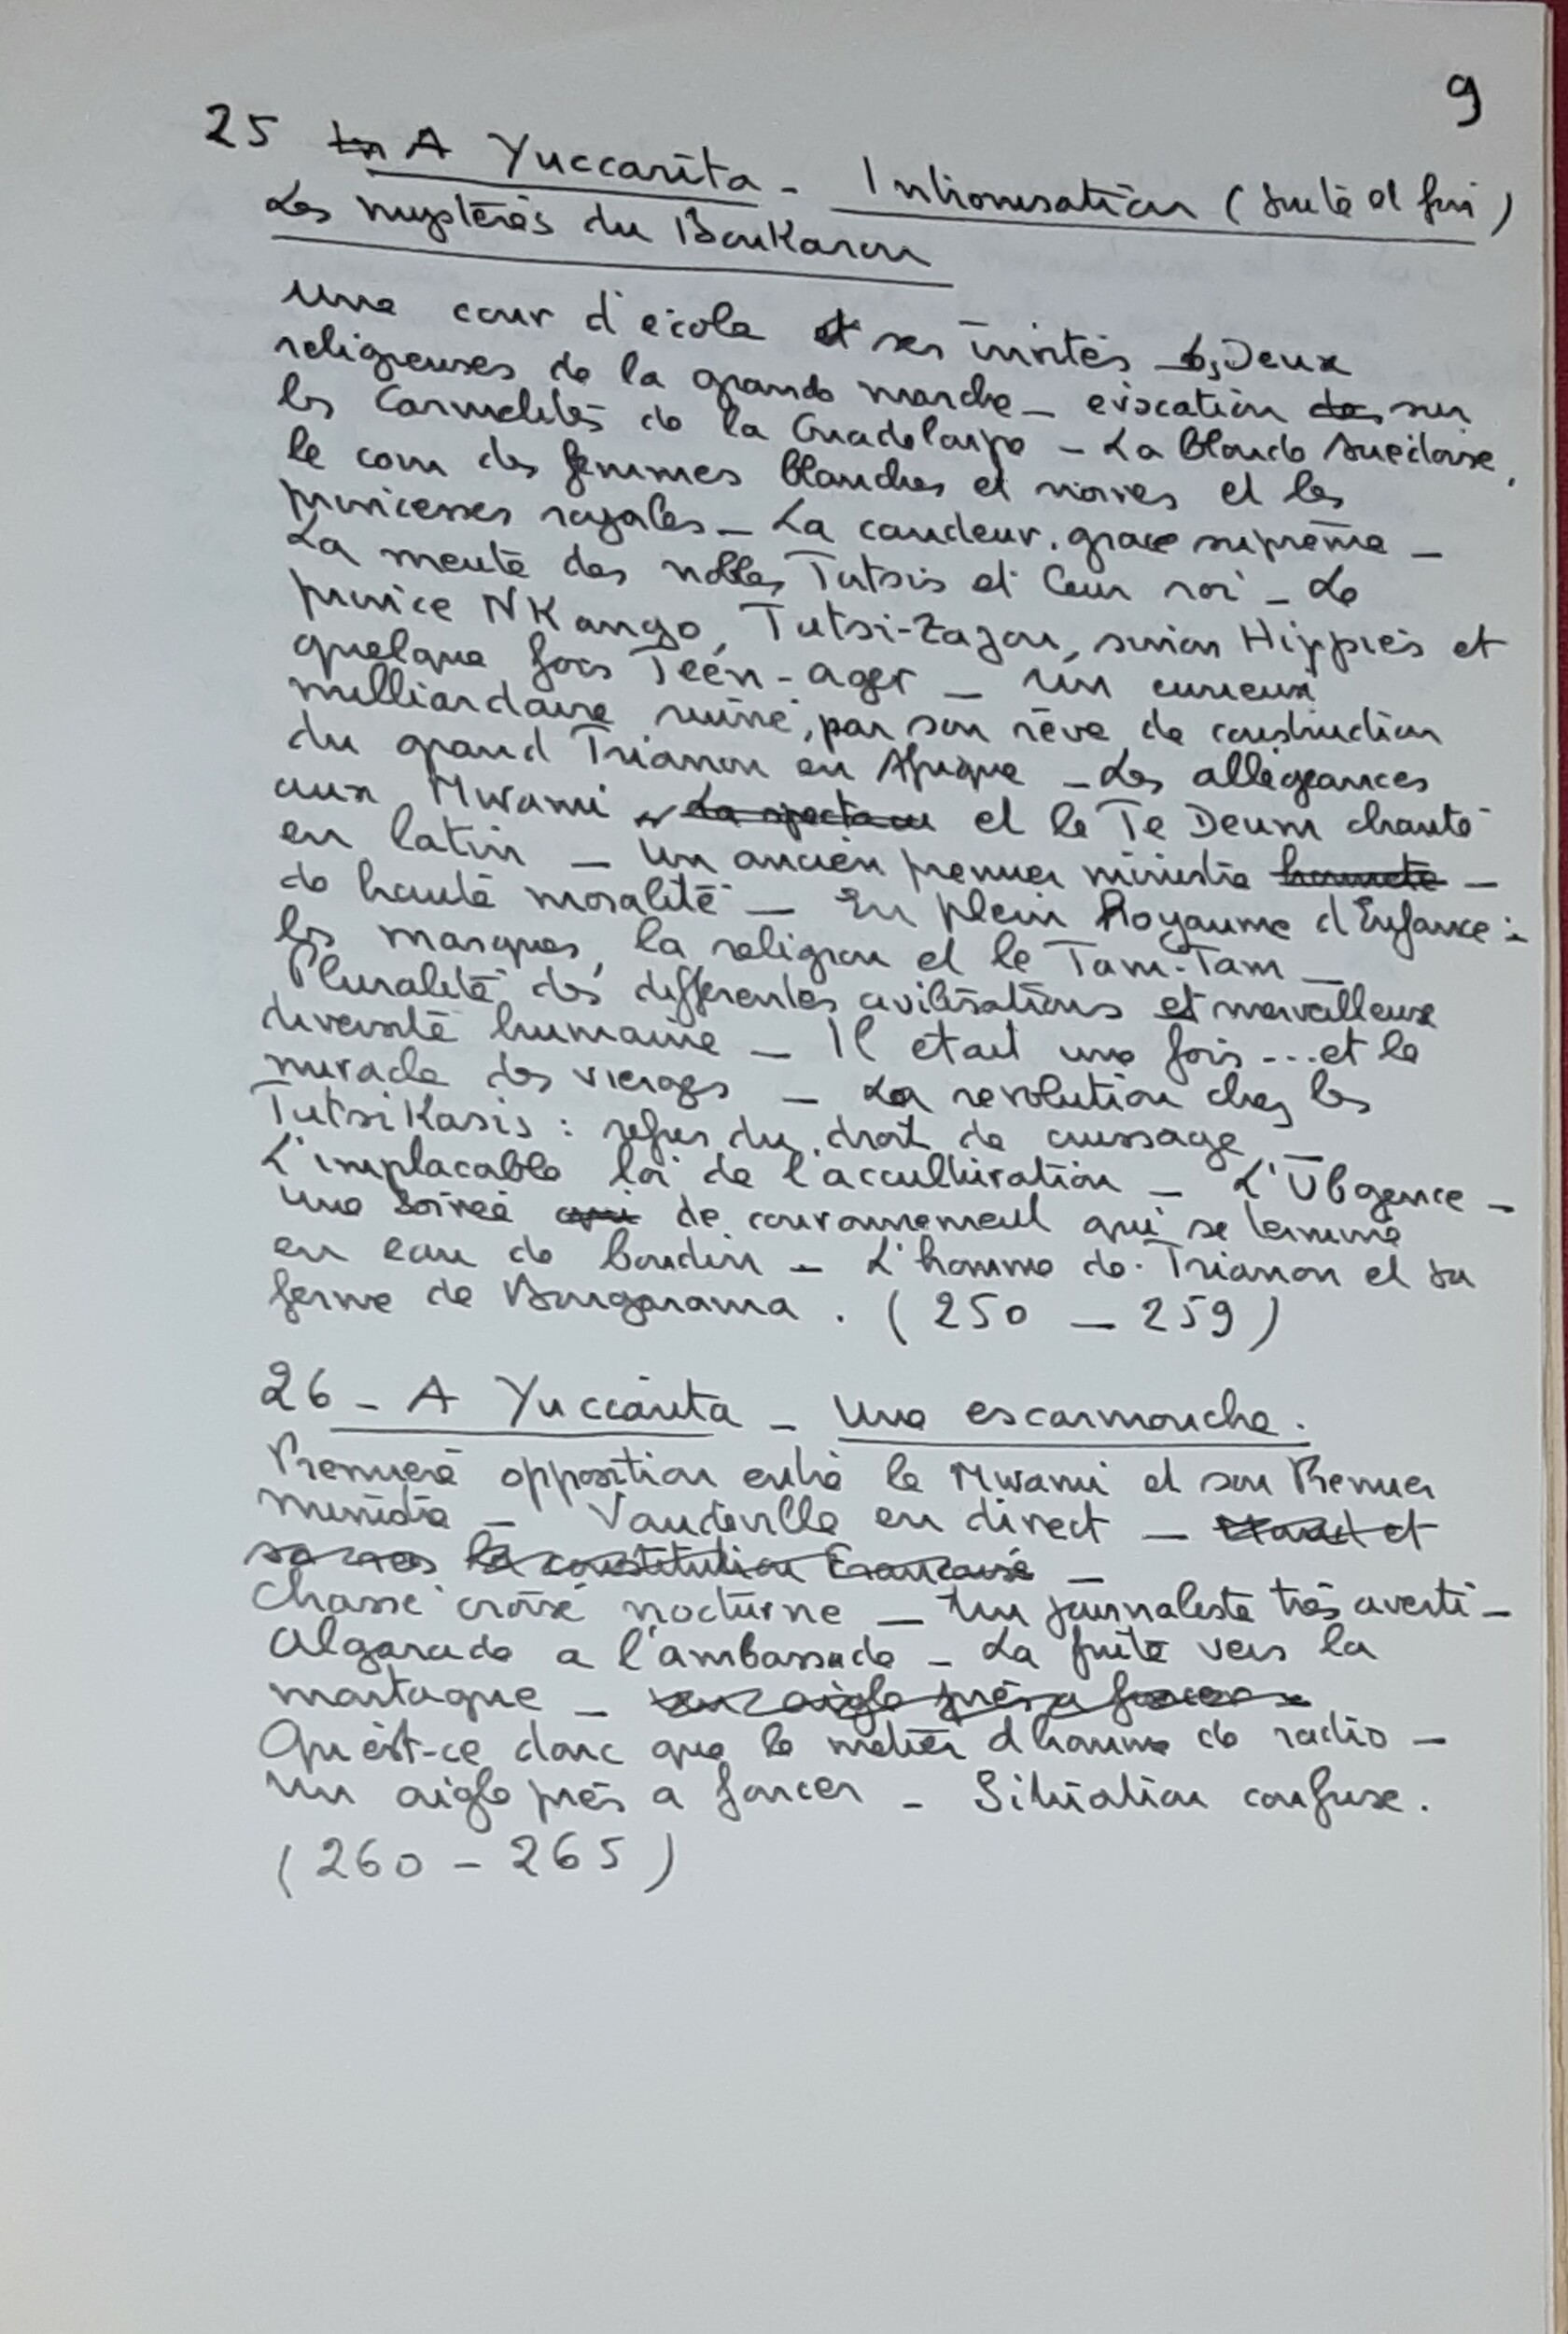 9
25 A Yuccarita - Intronisation (suite et fin)
Les mystères du Boukarou
Une cour d'école et ses invités - Deux
religieuses de la grande marche - évocation sur
les Carmelites de la Guadeloupe - La blonde Suédoise,
le coin des femmes blanches et noires et les
princesses royales - La candeur, grace suprême -
La meute des nobles Tutsis et leur roi - Le
prince NKango, Tutsi-Zazou, sinon Hippies et
quelque fois Teen-ager - Un curieux
milliardaire ruiné, par son rêve de construction
du grand Trianon en Afrique - Les allégeances
aux Mwami et le Te Deum chanté
en latin - Un ancien premier ministre honnete -
de haute moralité - En plein Royaume d'Enfance :
les masques, la religion et le Tam-Tam -
Pluralité des differentes civilisations et merveilleuse
diversité humaine - Il etait une fois ... et le
miracle des vierges - La revolution chez les
TutsiKasis : refus du droit de cuissage -
L'implacable loi de l'acculturation - L'Ubgence -
Une Soirée de couronnement qui se termine
en eau de boudin - L'homme de Trianon et sa
ferme de Bugarama . (250 - 259)
26 - A Yuccarita - Une escarmouche.
Premiere opposition entre le Mwami et son Premier
ministre - Vaudeville en direct - et
la constitution Francaise -
Chassé croisé nocturne - Un journaliste très averti -
Algarade a l'ambassade - La fuite vers la
montagne - un aigle près a foncer
Qu'est-ce donc que le métier d'homme de radio -
Un aigle près a foncer - Situation confuse.
(260 - 265)